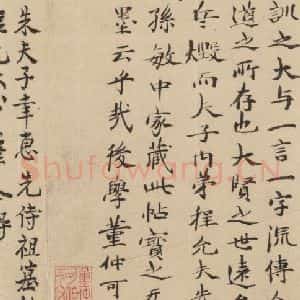 訓之大与一言一字流傳
道之所存也大賢之世遠
兵燬而夫子内弟程允夫
孫敏中家藏此帖寶之
墨云乎哉後學董仲可
朱夫子幸惠先侍祖墓
Shufawang.CN